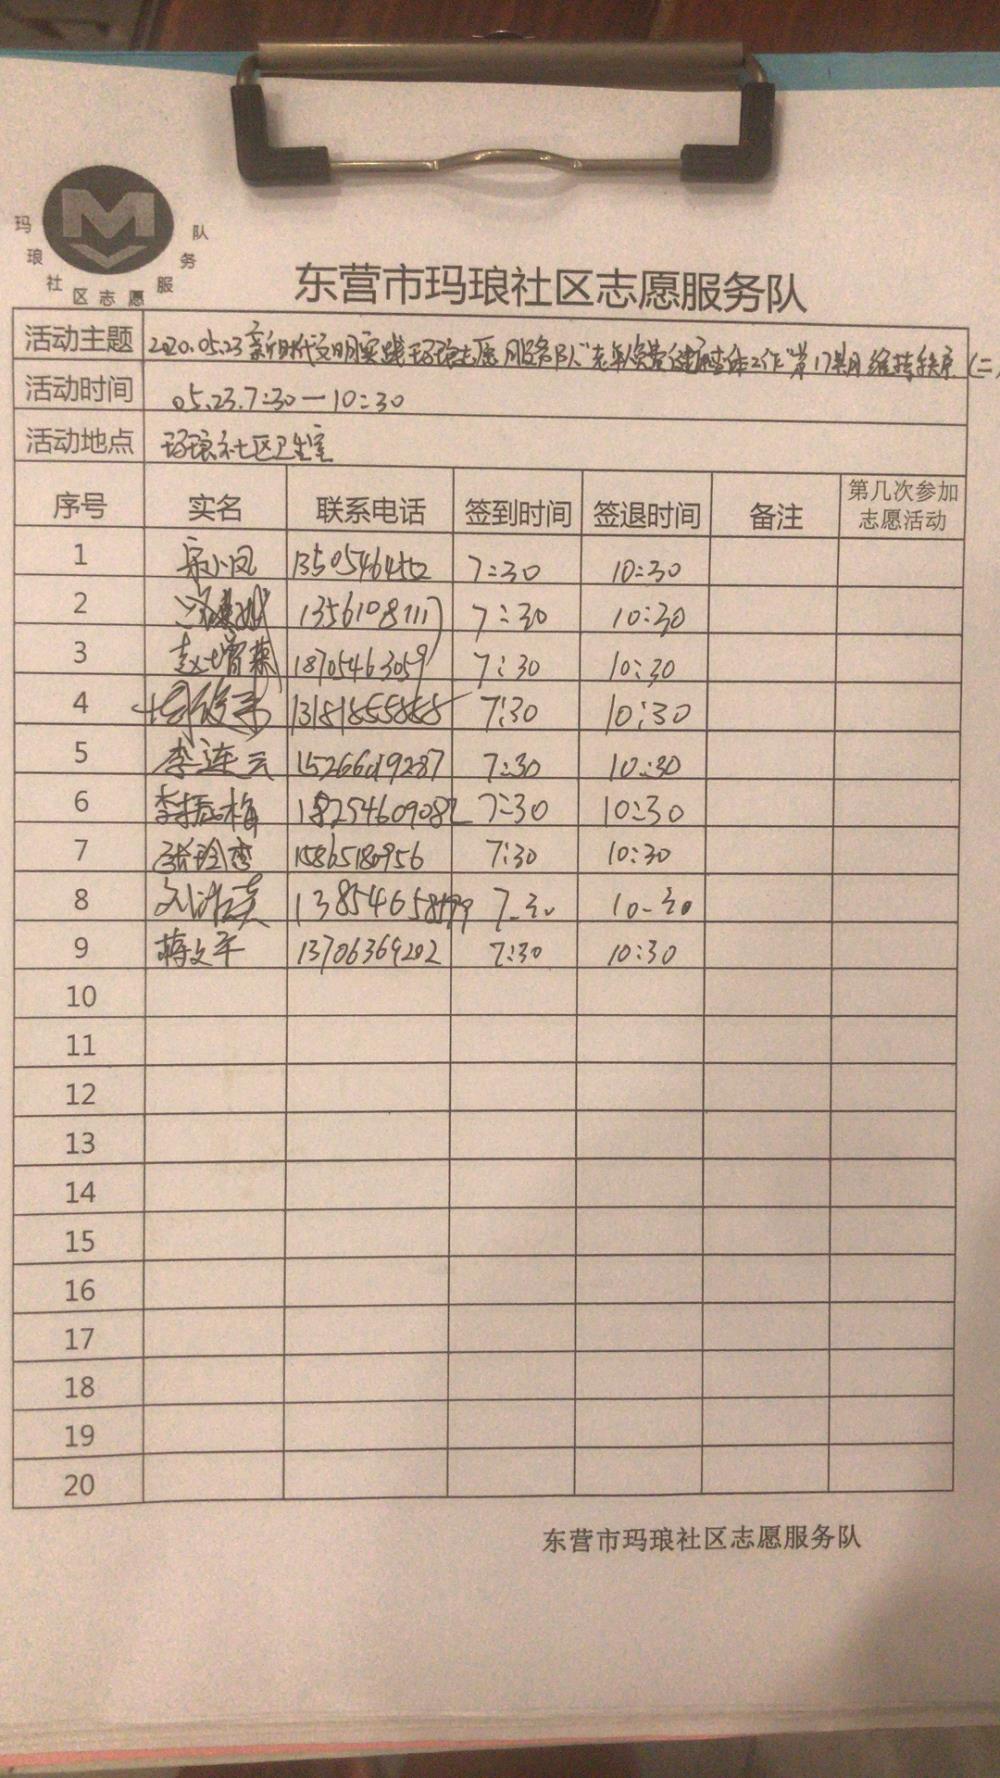 玛琅社区志愿服务队
东营市玛琅社区志愿服务队
活动主题 2020.05.23新时代文明实践玛琅志愿服务队"老年人免费健康查体工作"第17期维持秩序(二)
活动时间 05.23.7:30—10:30
活动地点 玛琅社区卫生室
序号 实名 联系电话 签到时间 签退时间 备注 第几次参加志愿活动
1 宋小凤 7:30 10:30
2 13561081117 7:30 10:30
3 赵增燕 18705463059 7:30 10:30
4 7:30 10:30
5 李连云 15266019287 7:30 10:30
6 李振梅 18254609082 7:30 10:30
7 张玲杏 15865180956 7:30 10:30
8 7.30 10.30
9 蒋文军 13706369202 7:30 10:30
10
11
12
13
14
15
16
17
18
19
20
东营市玛琅社区志愿服务队